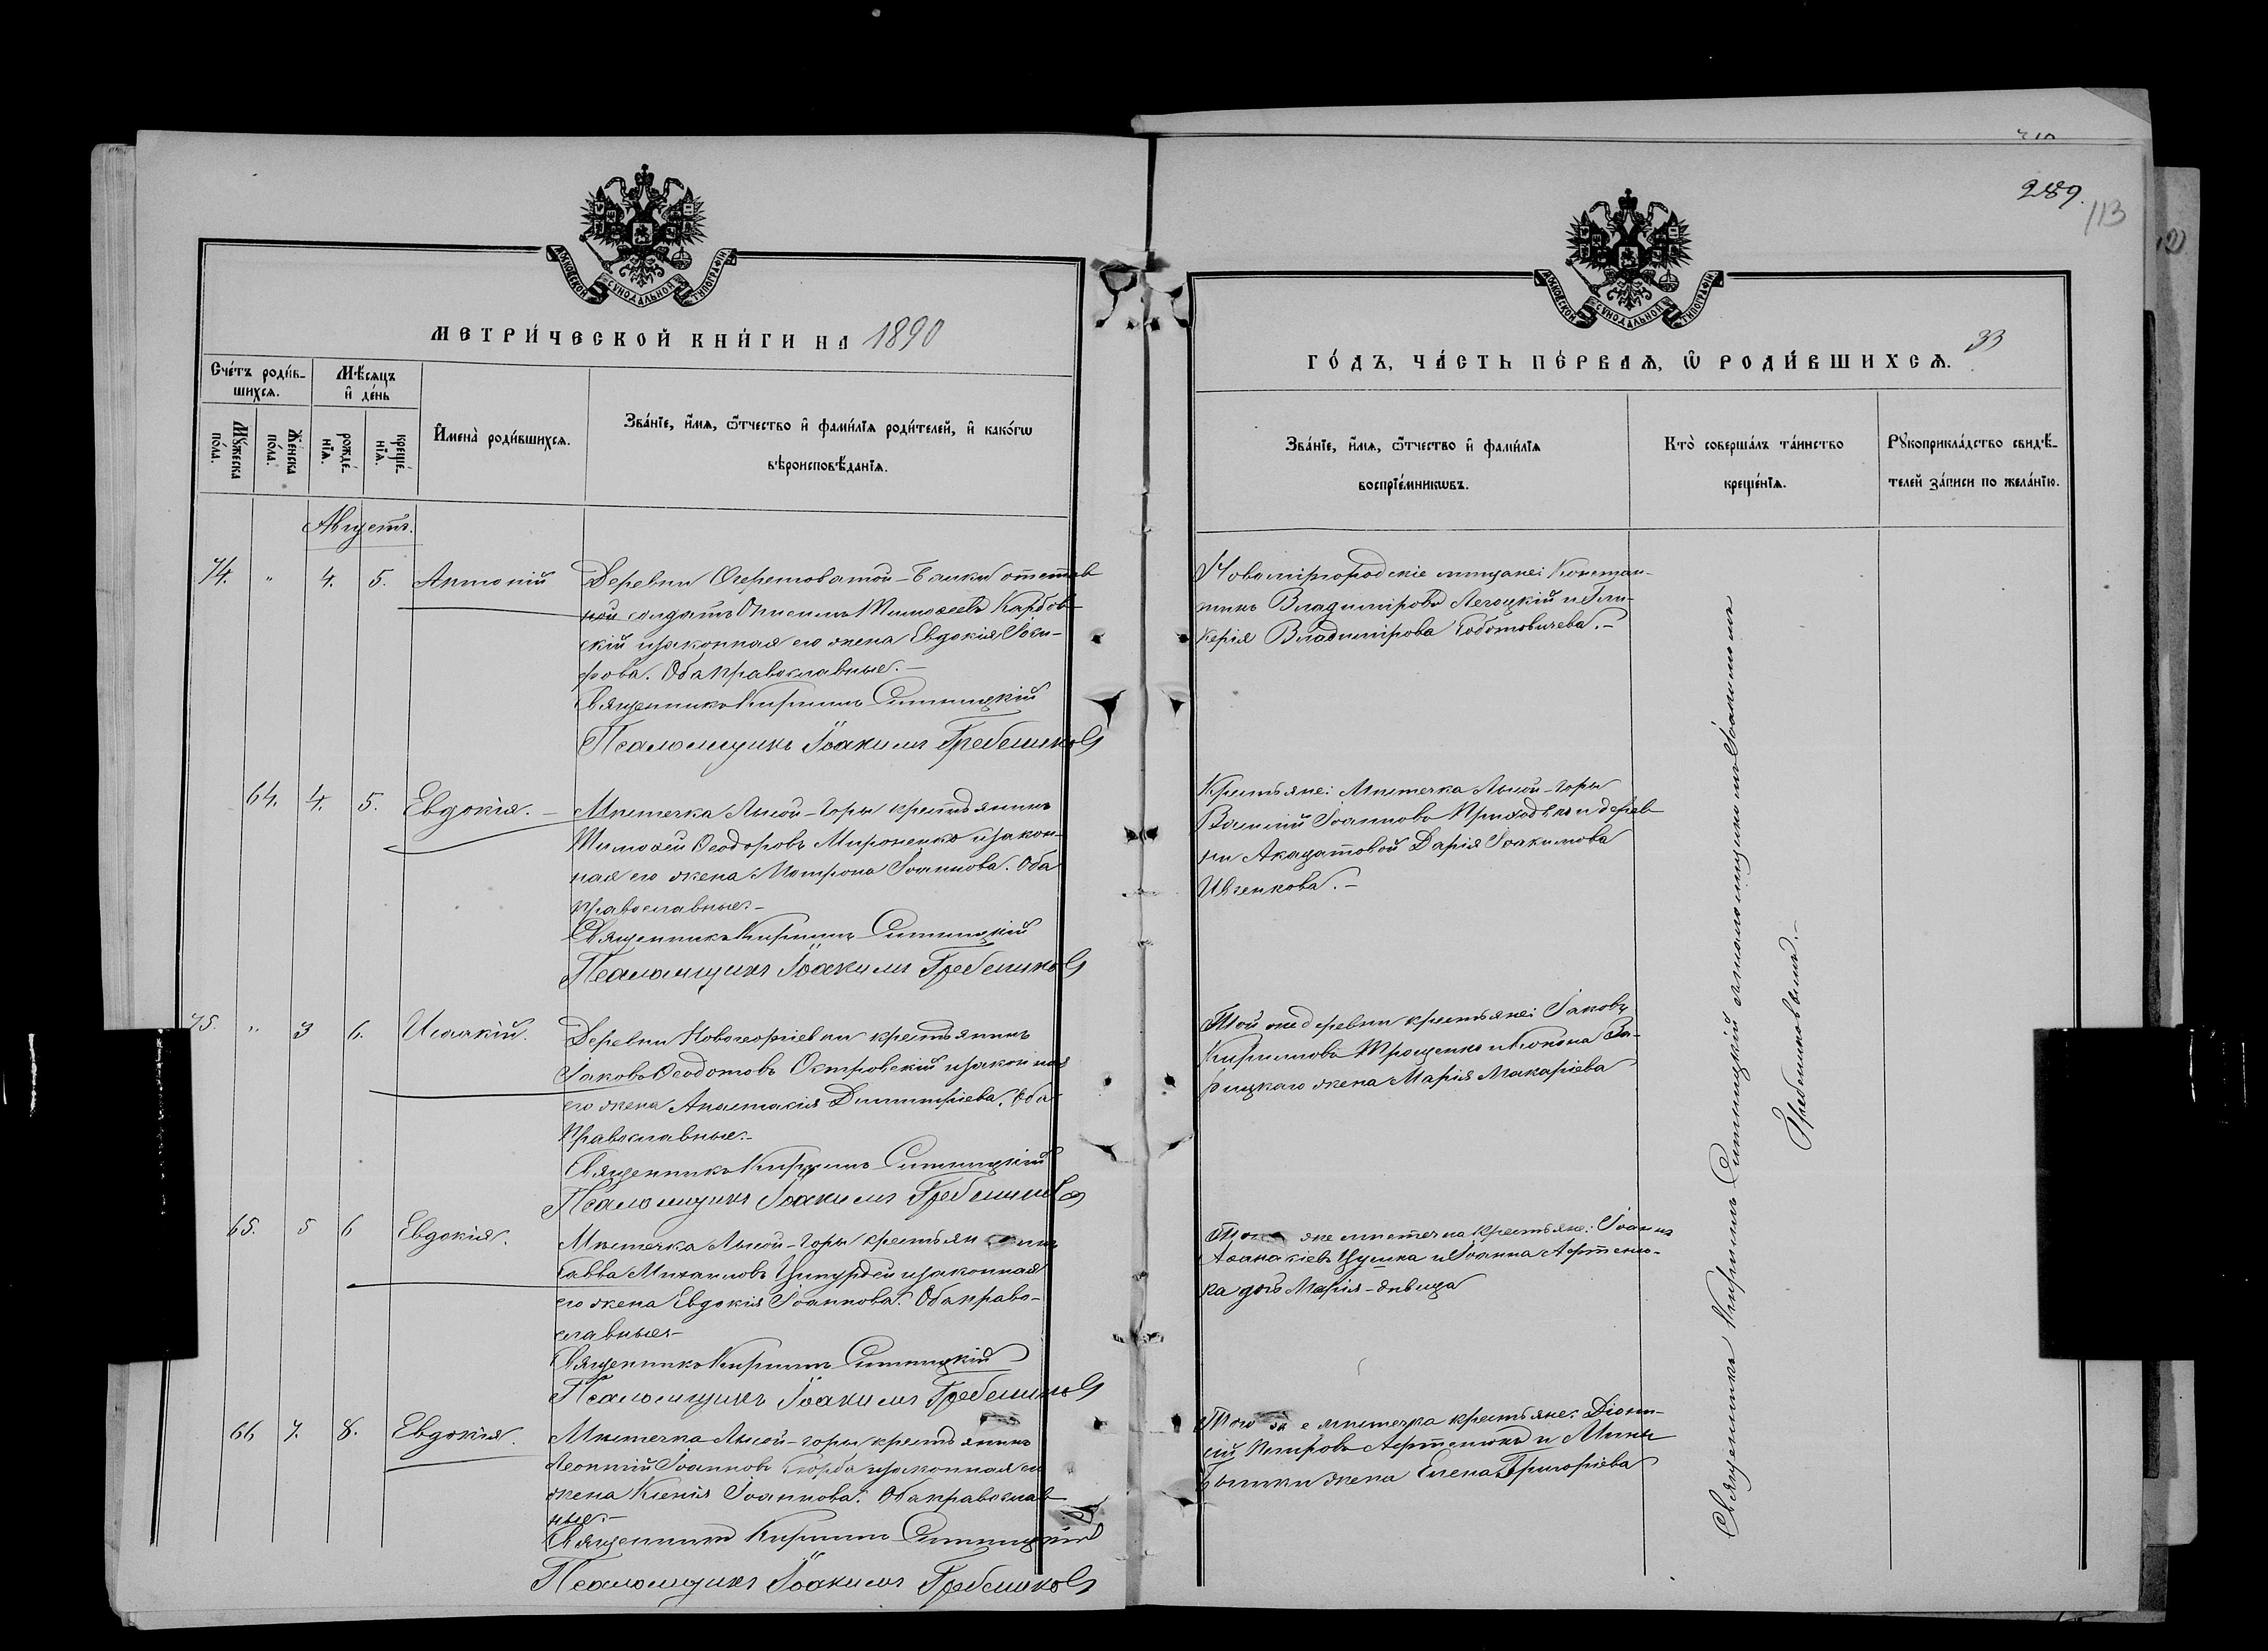 МОСКОВСКОЙ СѴНОДАЛЬНОЙ ТИПОГРАФІИ
МЕТРИ́ЧЕСКОЙ КНИ́ГИ НА 1890
Сче́тъ роди́в-
шихсѧ.
Мѣ́сѧцъ
и҆ де́нь
Мꙋ́жеска по́ла.
Же́нска по́ла.
рожде́-
нїѧ.
креще́-
нїѧ.
И҆мена̀ роди́вшихсѧ.
Зва́нїе, и҆́мѧ, ѻ҆́тчество и҆ фами́лїѧ роди́телей, и҆ како́гѡ
вѣроисповѣ́данїѧ.
Августъ.
74. " 4. 5. Антоній
Деревни Очеретоватой-Балки отстав-
ной солдатъ Онисимъ Тимоѳеевъ Карбов-
скій и законная его жена Евдокія
Оба православные.-
Священникъ Кириллъ Синицкій
Псаломщикъ Іоакимъ Гребешковъ
64. 4. 5. Евдокія.-
Мѣстечка Лысой-Горы крестьянинъ
Тимоѳей Ѳеодоровъ Мироненко и закон-
ная его жена Матрона Іоаннова. Оба
православные.-
Священникъ Кириллъ Синицкій
Псаломщикъ Іоакимъ Гребешковъ
75. " 3 6. Исаакій.
Деревни Новогеоргіевки крестьянинъ
Іаковъ Ѳеодотовъ Островскій и законная
его жена Анастасія Димитріева. Оба
православные.-
Священникъ Кириллъ Синицкій
Псаломщикъ Іоакимъ Гребешковъ
65. 5 6 Евдокія.
Мѣстечка Лысой-Горы крестьянинъ
Савва Михаиловъ и законная
его жена Евдокія Іоаннова. Оба право-
славные.-
Священникъ Кириллъ Синицкій
Псаломщикъ Іоакимъ Гребешковъ
66 7. 8. Евдокія.
Мѣстечка Лысой-горы крестьянинъ
Леонтій Іоанновъ и законная его
жена Ксенія Іоаннова. Оба православ-
ные.-
Священникъ Кириллъ Синицкій
Псаломщикъ Іоакимъ Гребешковъ
289.
113
МОСКОВСКОЙ СѴНОДАЛЬНОЙ ТИПОГРАФІИ
ГО́ДЪ, ЧА́СТЬ ПЕ́РВАѦ, Ѡ҆ РОДИ́ВШИХСѦ. 33
Зва́нїе, и҆́мѧ, ѻ҆́тчество и҆ фами́лїѧ
воспрїе́мникѡвъ.
Кто̀ соверша́лъ та́инство
креще́нїѧ.
Рꙋкоприкла́дство свидѣ́-
телей за́писи по жела́нїю.
Новомиргородскіе мѣщане: Констан-
тинъ Владиміровъ и Гли-
керія Владимірова
Крестьяне: Мѣстечка Лысой-Горы
Василій Іоанновъ Приходько и дерев-
ни Акацатовой Дарія Іоакимова
Ивченкова.-
Той же деревни крестьяне: Іаковъ
Кирилловъ Трощенко и
жена Марія Макаріева
Того же мѣстечка крестьяне: Іоаннъ
Аѳанасіевъ и Іоанна Артеню-
ка дочь Марія-дѣвица
Того же мѣстечка крестьяне: Діони-
сій Петровъ Артенюкъ и Мины
жена Елена Григоріева
Священникъ Кириллъ Синицкій съ псаломщикомъ Іоакимомъ
Гребешковымъ.-